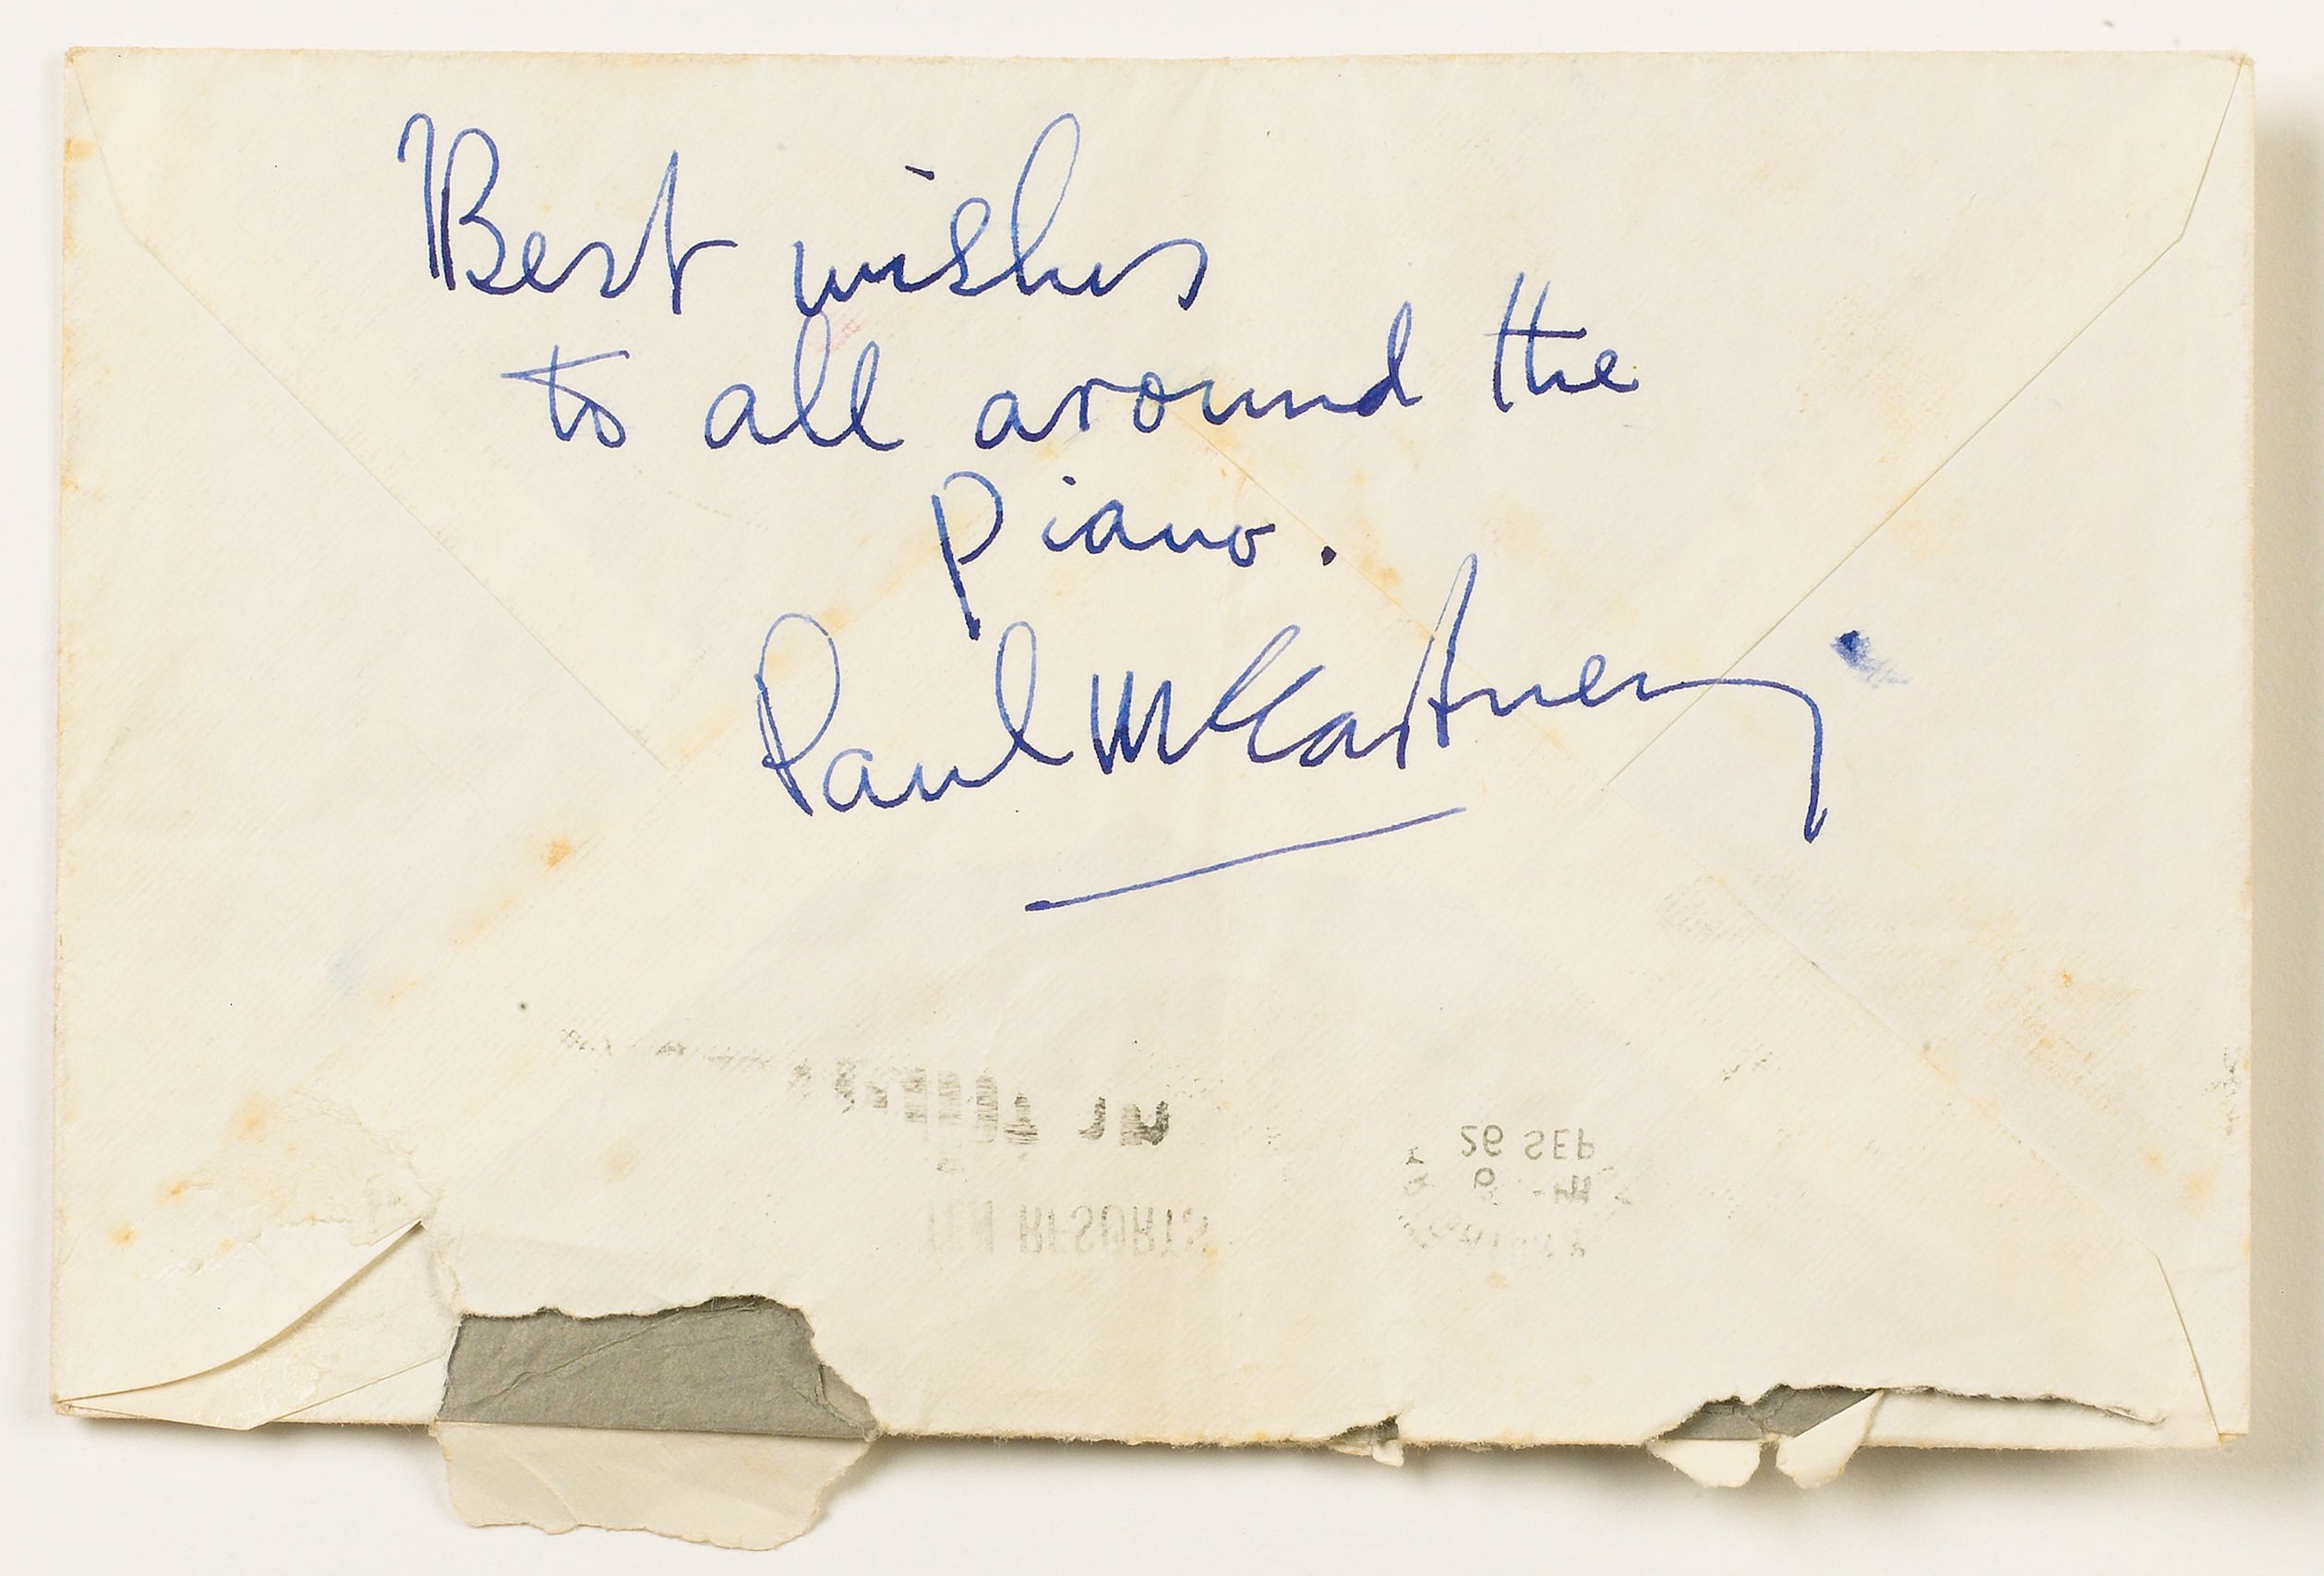 Best wishes
to all around the
piano.
Paul McCartney
26 SEP
TEN RESORTS